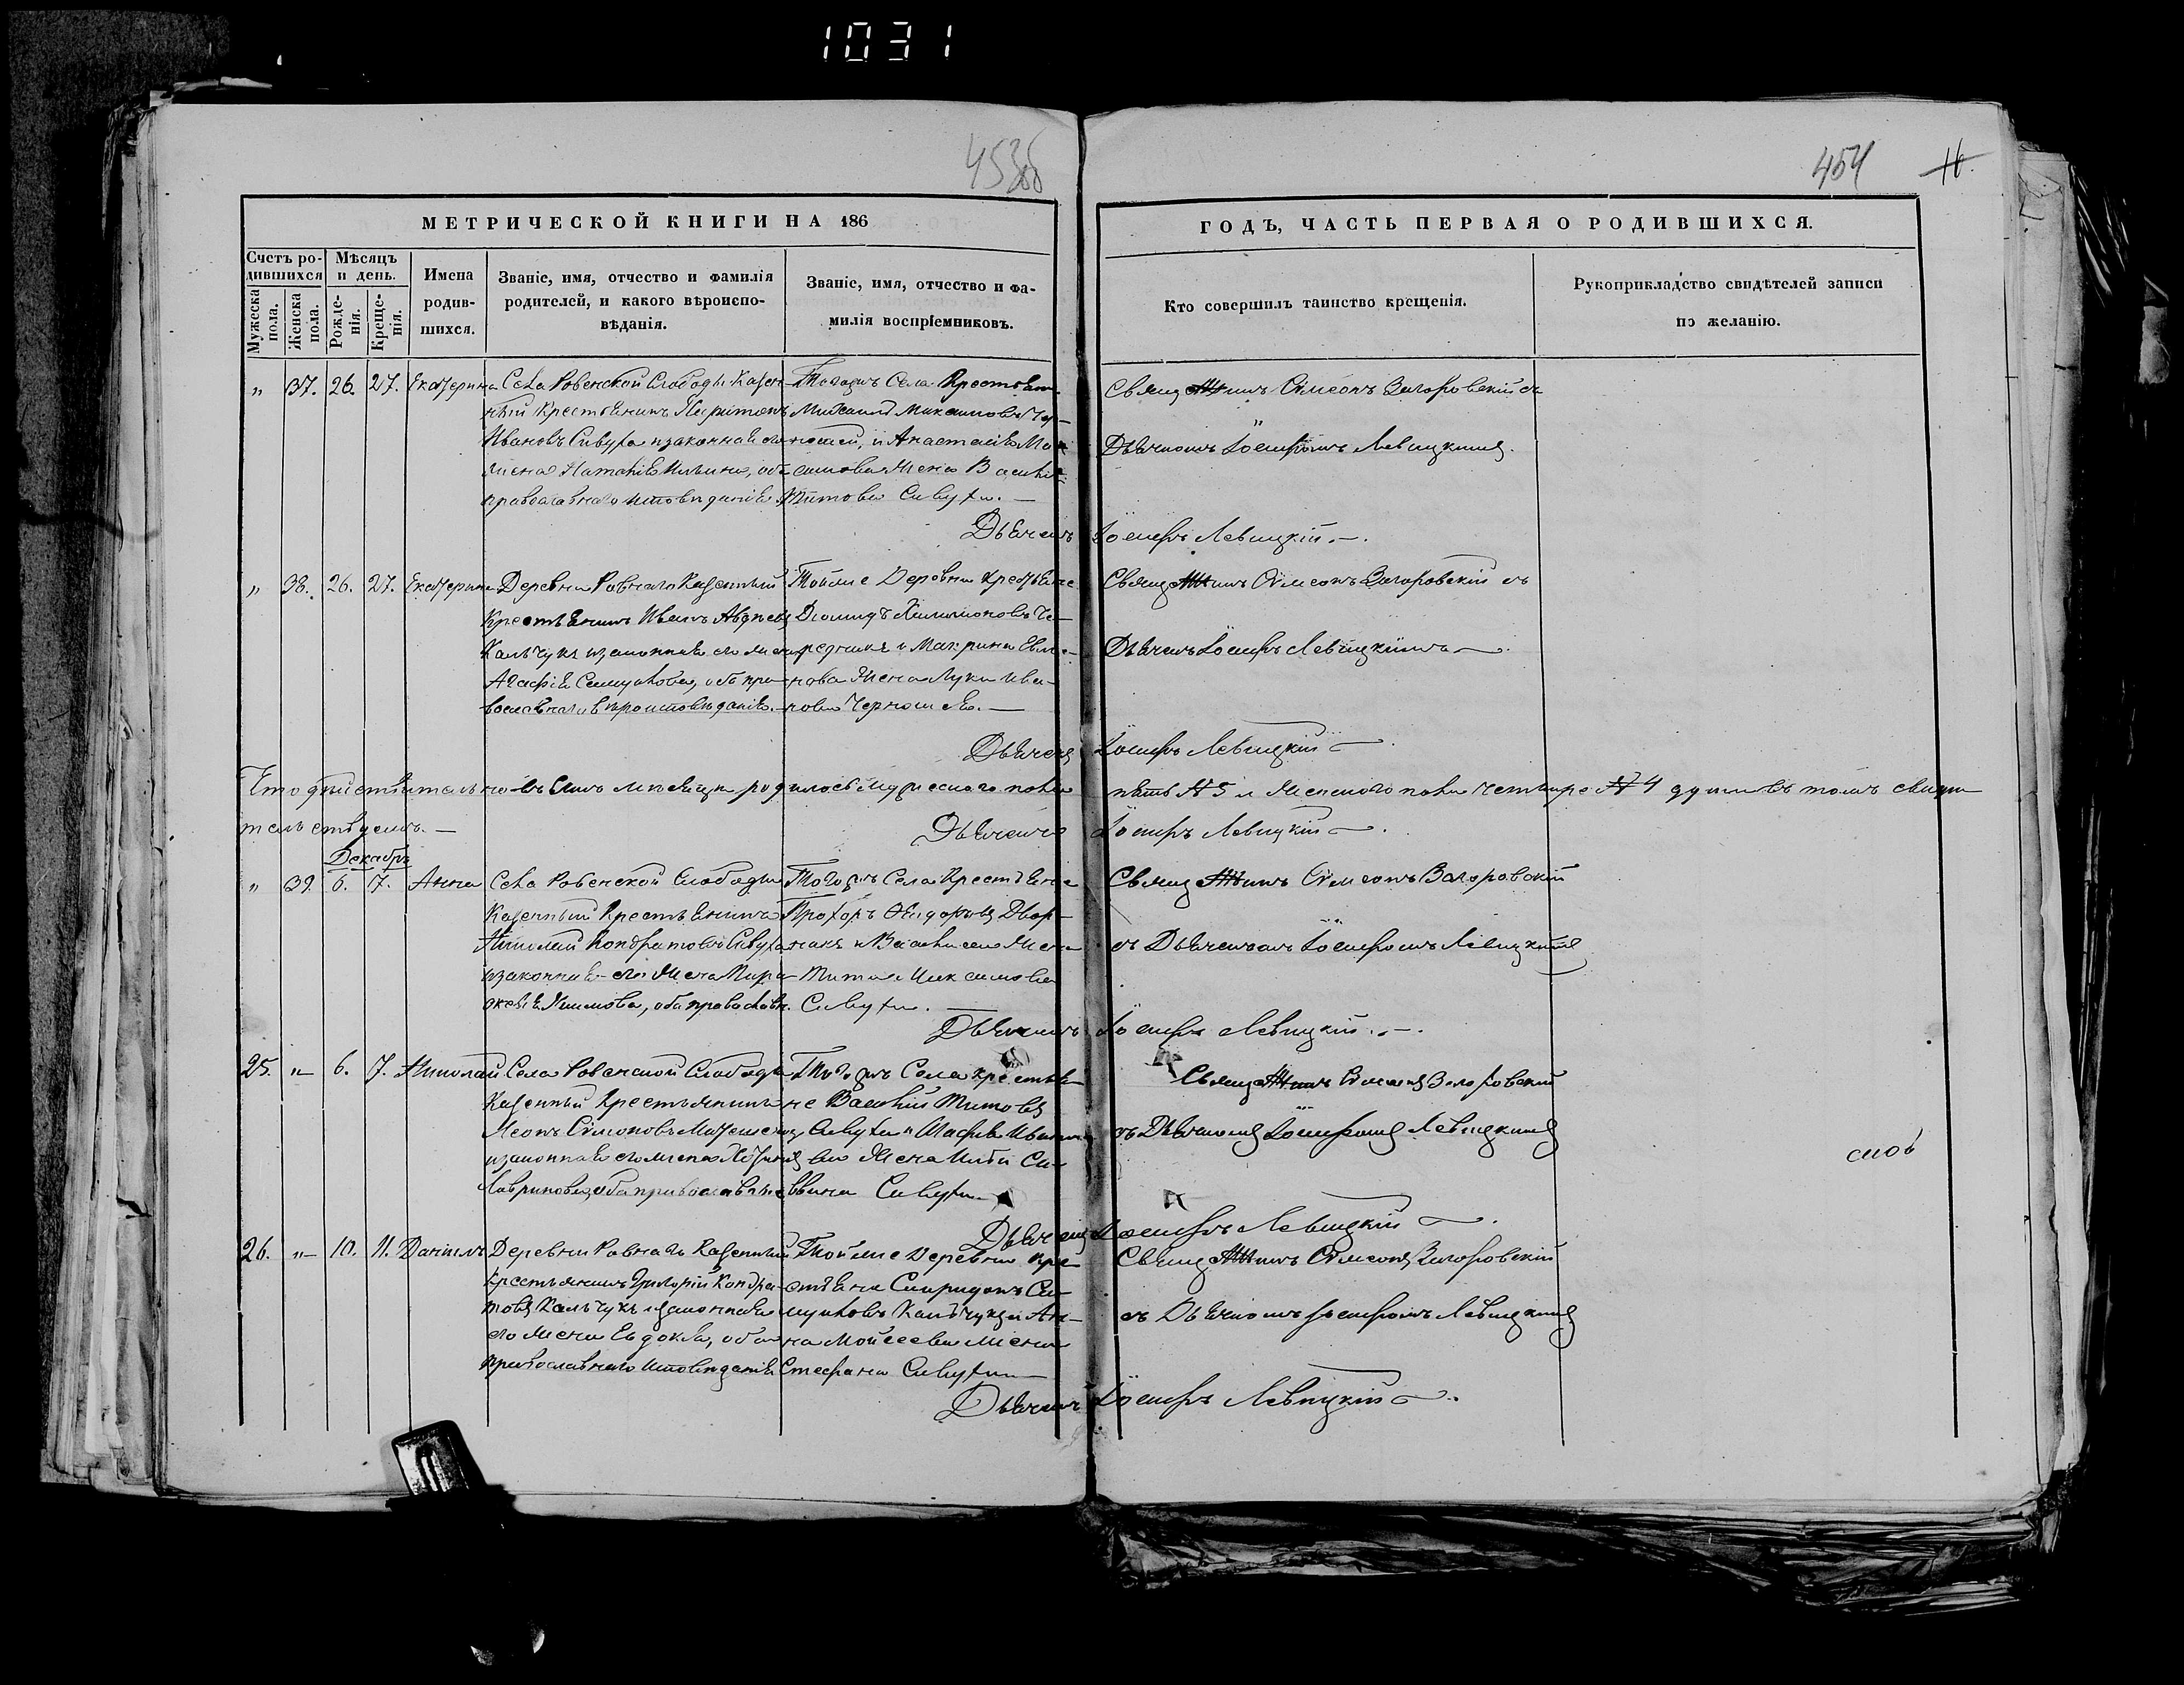 1031
453об
454
16.
МЕТРИЧЕСКОЙ КНИГИ НА 186
ГОДЪ, ЧАСТЬ ПЕРВАЯ О РОДИВШИХСЯ.
Счетъ родившихся
Мѣсяцъ и день.
Мужеска пола.
Женска пола.
Рожденія.
Крещенія.
Имена родившихся.
Званіе, имя, отчество и фамилія родителей, и какого вѣроисповѣданія.
Званіе, имя, отчество и фамилія воспріемниковъ.
Кто совершилъ таинство крещенія.
Рукоприкладство свидѣтелей записи по желанію.
„ 37. 26. 27. Екатерина
Села Ровенской Слободы Казен-
ный Крестьянинъ Харитонъ
Ивановъ Сивуха изаконная его
жена Наталія Ильина, оба
православнаго исповѣданія
Тогожъ Села Крестьяне
Михаилъ Максимовъ
и Анастасія
жена Василія
Титова Сивухи. —
Свящ Симеонъ Загоровскій съ
Дьячкомъ Іосифомъ Левицкимъ.
Дьячекъ Іосифъ Левицкій. —
„ 38. 26. 27. Екатерина
Деревни Ровнаго Казенный
Крестьянинъ Иванъ Авдѣевъ
Кальчукъ изаконная его жена
Агафія Самуилова, оба пра-
вославнаго вѣроисповѣданія. —
Тойже Деревни Крестьяне
Диомидъ Филимоновъ Че-
редникъ и Макрина
нова жена Луки Ива-
нова
Свящ Симеонъ Загоровскій съ
Дьячкомъ Іосифомъ Левицкимъ —
Дьячекъ Іосифъ Левицкій —
Что дѣйствительно въ семъ мѣсяцѣ родилось мужескаго пола пять № 5 и Женского пола четыре № 4 души въ томъ свидѣ
тельствуемъ. —
Дьячекъ Іосифъ Левицкій —
Декабрь
„ 39. 6. 7. Анна
Села Ровенской Слободы
Казенный Крестьянинъ
Николай Кондратовъ Сивуха
изаконная его жена
оба православн.
Тогожъ Села Крестьяне
Прохоръ Двор-
никъ и Василиса жена
Тита Максимова
Сивухи. —
Свящ Симеонъ Загоровскій
съ Дьячкомъ Іосифомъ Левицкимъ
Дьячекъ Іосифъ Левицкій. —
25. „ 6. 7. Николай
Села Ровенской Слободы
Казенный Крестьянинъ
Леонъ Симоновъ
изаконная его жена
оба православные
Тогожъ Села крестья
не Василій Титовъ
Сивуха и
жена Ильи Са-
ввина Сивухи —
Свящ Симеонъ Загоровскій
съ Дьячкомъ Іосифомъ Левицкимъ
Дьячекъ Іосифъ Левицкій —
26. „ 10. 11. Даніилъ
Деревни Ровнаго Казенный
Крестьянинъ Григорій Кондра-
товъ Кальчукъ изаконная
его жена Евдокія, оба
православнаго исповѣданія
Тойже Деревни кре-
стьяне Спиридонъ Са-
муиловъ Кальчукъ и Ан-
на Мойсеева жена
Стефана Сивухи —
Свящ Симеонъ Загоровскій
съ Дьячкомъ Іосифомъ Левицкимъ
Дьячекъ Іосифъ Левицкій —